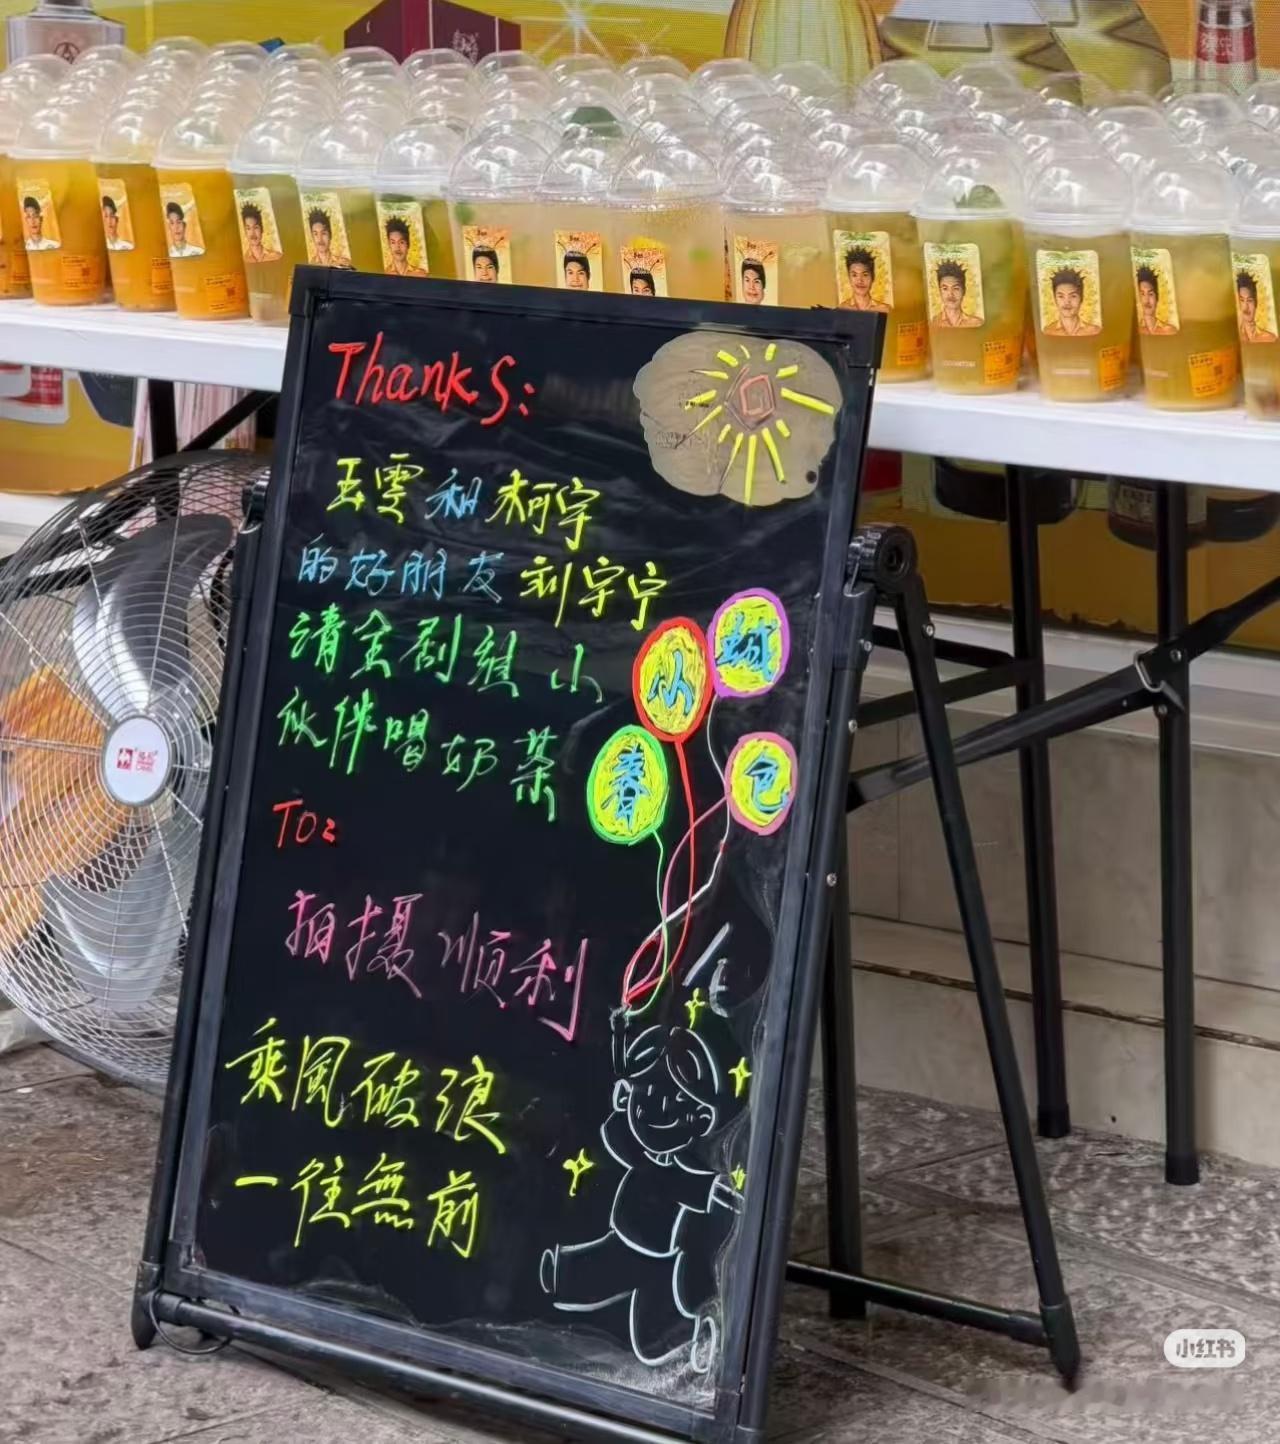 Thanks:
玉雲和柯宇
的好朋友刘宇宁
请全剧组小
伙伴喝奶茶
山城
春色
TO:
拍摄顺利
乘風破浪
一往無前
小红书